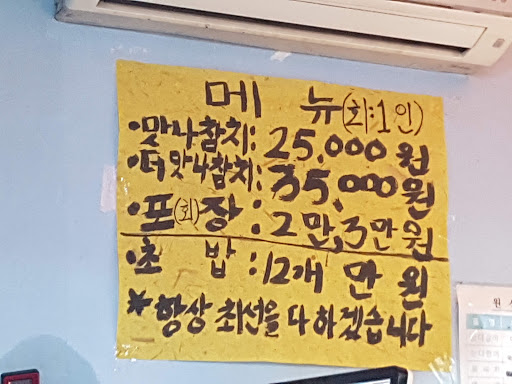 메 뉴(회:1인)
·맛나참치: 25,000원
·더맛나참치: 35,000원
·포(회)장: 2만, 3만원
·초 밥: 12개 만 원
*항상 최선을 다하겠습니다